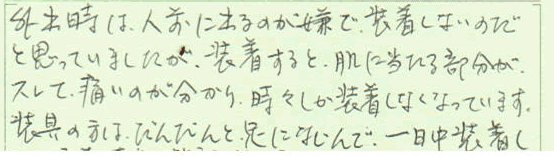 外出時は、人前に出るのが嫌で、装着しないのだ
と思っていましたが、装着すると、肌に当たる部分が、
スレて、痛いのが分かり、時々しか装着しなくなっています。
装具の方は、だんだんと足になじんで、一日中装着し